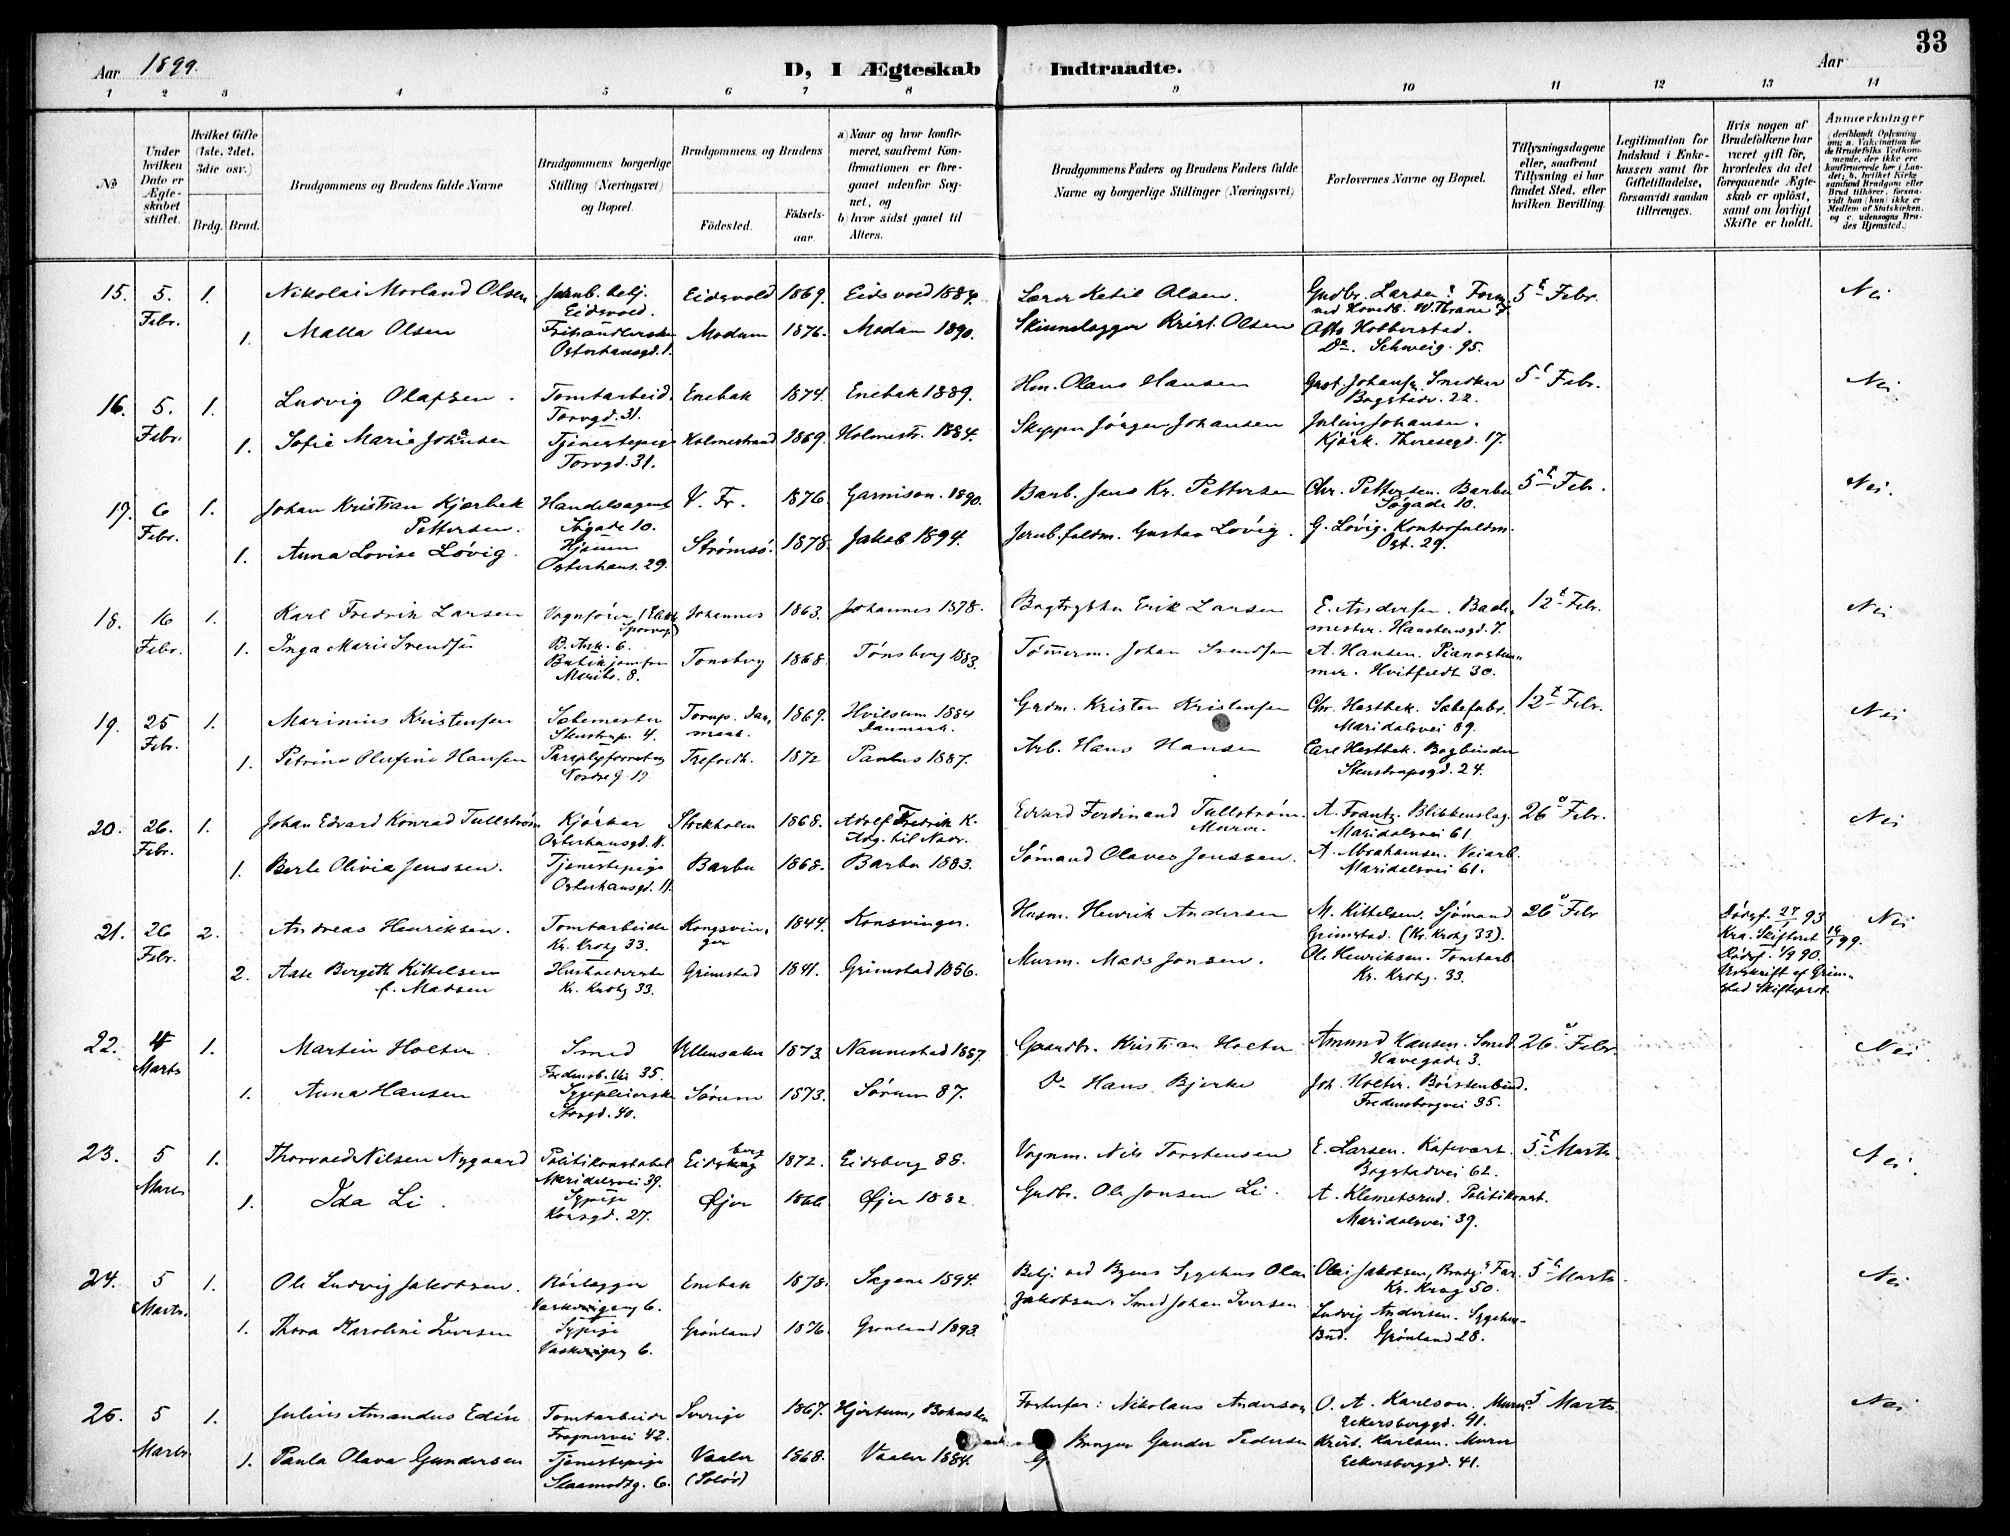 33
Aar 1899. D, I Ægteskab Indtraadte. Aar
1 2 3 4 5 6 7 8 9 10 11 12 13 14
No
Under hvilken Dato er Ægteskabet stiftet.
Hvilket Gifte (1ste, 2det, 3die osv.)
Brdg. Brud.
Brudgommens og Brudens fulde Navne
Brudgommens borgerlige Stilling (Næringsvei) og Bopæl.
Brudgommens og Brudens
Födested.
Födselsaar.
a) Naar og hvor konfirmeret, saafremt Konfirmationen er foregaaet udenfor Sognet, og
b) hvor sidst gaaet til Alters.
Brudgommens Faders og Brudens Faders fulde Navne og borgerlige Stillinger (Næringsvei)
Forlovernes Navne og Bopæl.
Tillysningsdagene eller, saafremt Tillysning ei har fundet Sted, efter hvilken Bevilling.
Legitimation for Indskud i Enkekassen samt for Giftetilladelse, forsaavidt saadan tiltrænges.
Hvis nogen af Brudefolkene har været gift før, hvorledes da det foregaaende Ægteskab er opløst, samt om lovligt Skifte er holdt.
Anmærkninger
15. 5. Febr. 1. Nikolai Morland Olsen Jernb. betj. Eidsvold. Eidsvold 1869. Eidsvold 1884. Lærer Ketil Olsen. Gudbr. Larsen 5t Febr. Nei
1. Malla Olsen Frihandlerske Osterhausgd. 1. Modum 1876. Modum 1890. Skinnelægger Krist. Olsen Schweig. 95.
16. 5. Febr. 1. Ludvig Olafsen. Tomtarbeid. Torvgd. 31. Enebak 1874. Enebak 1889. Hm. Olaus Hansen Gust. Johansen Snedker Bogstadv. 22. 5t Febr. Nei
1. Sofie Marie Johansen Tjenestepige Torvgd. 31. Holmestrand 1869. Holmestr. 1884. Skipper Jörgen Johansen Julius Johansen. Kjörk. Theresegd. 17.
17. 6 Febr. 1. Johan Kristian Kjærbek Pettersen. Handelsagent Søgade 10. V. Fr. 1876. Garnison. 1890. Barb. Jens Kr. Pettersen Chr. Pettersen. Barber Søgade 10. 5t Febr. Nei.
1. Anna Lovise Lövig. Hjemme Osterhaus. 29. Strømsö. 1878. Jakob 1894. Jernb. fuldm. Gustav Lövig. G. Lövig. Kontorfuldm. Ost. 29.
18. 16 Febr. 1. Karl Fredrik Larsen Vognfører (Elektr. Sporvog) B. Ask. 6. Johannes 1863. Johannes 1878. Bogtrykker Erik Larsen E. Andersen. Bademester. Hausmannsgd. 7. 12t Febr. Nei
1. Inga Marie Svendsen Butikjomfru 8. Tonsberg 1868. Tönsberg 1883. Tömmerm. Johan Svendsen A. Hansen. Hvitfeldt 30.
19. 25 Febr. 1. Marinius Kristensen Sæbemester Stenstrup. 4. Torup. Danmark. 1869. Hvilsum 1884 Danmark. Grdm. Kristen Kristensen Chr. Hestbek. Sæbefabr. Maridalsvei 89. 12t Febr. Nei
1. Petrine Olufine Hansen Paraplyforretng Nordre g. 19 Trefoldh. 1872 Paulus 1887. Arb. Hans Hansen Carl Hestbek. Bogbinder Stenstrupsgd. 24.
20. 26. Febr. 1. Johan Edvard Konrad Tullström Kjörkar Osterhausgd. 11. Stockholm 1868. Adolf Fredrik K. Adg. til Nadv. Edvard Ferdinand Tullström. Murer. A. Frantz. Blikkenslag. Maridalsvei 61. 26 Febr. Nei
1. Berte Olivia Jenssen. Tjenestepige Osterhausgd. 11. Barbu 1868. Barbu 1883. Sømand Olaves Jenssen. A. Abrahamsen. Veiarb. Maridalsvei 61.
21. 26 Febr. 2. Andreas Henriksen. Tomtarbeider Kr. Krohg 33. Kongsvinger 1844. Konsvinger. Husm. Henrik Andersen M. Kittelsen. Sjömand Grimstad. (Kr. Krohg 33). 26 Febr Nei
2. Aase Bergith Kittelsen f. Madsen Husholderske Kr. Krohg 33. Grimstad 1841. Grimstad 1856. Murm. Mads Jensen. Ole Henriksen. Tomtarb Kr. Krohg. 33. Kra. Skifteret Udskrift af Grimstad Skifteprot.
22. 4 Marts 1. Martin Holter Smed Fredensb. vei 35. Ullensaker 1873. Nannestad 1887. Gaardbr. Kristian Holter Amund Hansen. Smed. Havegade 3. 26 Febr. Nei.
1. Anna Hansen Sygepleierske Storgd. 40. Sörum 1873. Sörum 87. Do Hans Bjerke Joh. Holter. Börstenbind. Fredensborgvei 35.
23. 5 Marts 1. Thorvald Nilsen Nygaard Politikonstabel Maridalsvei 39. Eidsberg 1872. Eidsberg 88. Vognm. Nils Torstensen E. Larsen. Kafevært. Bogstadvei 62. 5t Marts. Nei.
1. Ida Li. Sypige Korsgd. 27. Øjer 1866 Øjer 1882. Gudbr. Ole Jensen Li. A. Klemetsrud. Politikonst. Maridalsvei 39.
24. 5 Marts. 1. Ole Ludvig Jakobsen. Rörlægger 6. Enebak 1878. Sagene 1894. Betj. ved Byens Sygehus Olai Jakobsen. Olai Jakobsen, Brudg. Far. Kr. Krog 50. 5t Marts. Nei
1. Thora Karoline Iversen Sypige 6. Grönland 1876. Grønland 1893. Smed Johan Iversen Ludvig Andersen. Sygehus-Bud. Grönland 28.
25. 5 Marts 1. Julius Amandus Edén Tomtarbeider Frognervei 42. Sverige 1867. Hjertum, Bohuslen Fosterfar: Nikolaus Anderson O. A. Karlson. Murer. Eckersberggd. 41. 5 Marts. Nei
1. Paula Olava Gundersen Tjenestepige 6. Vaaler (Solör) 1868. Vaaler 1884. Gunder Pedersen Krist. Karlsen. Murer Eckersberggd. 41.